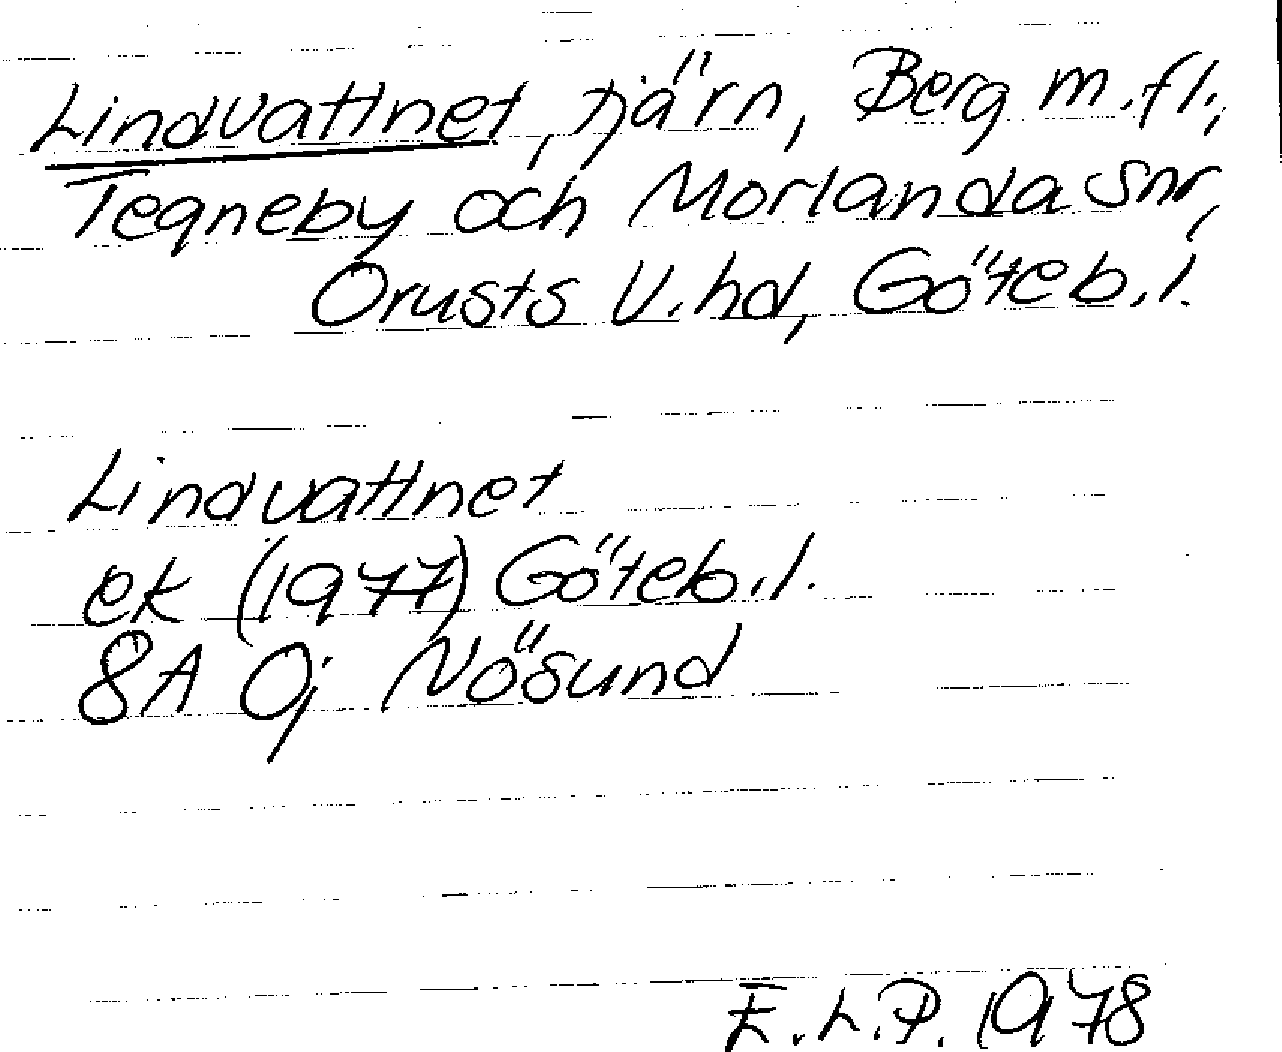 Lindvattnet, tjärn, Berg m.fl.,
Tegneby och Morlanda snr,
Orusts V. hd, Göteb. l.
Lindvattnet
ek (1977) Göteb. l.
8A 0j Nösund
E.L.P. 1978